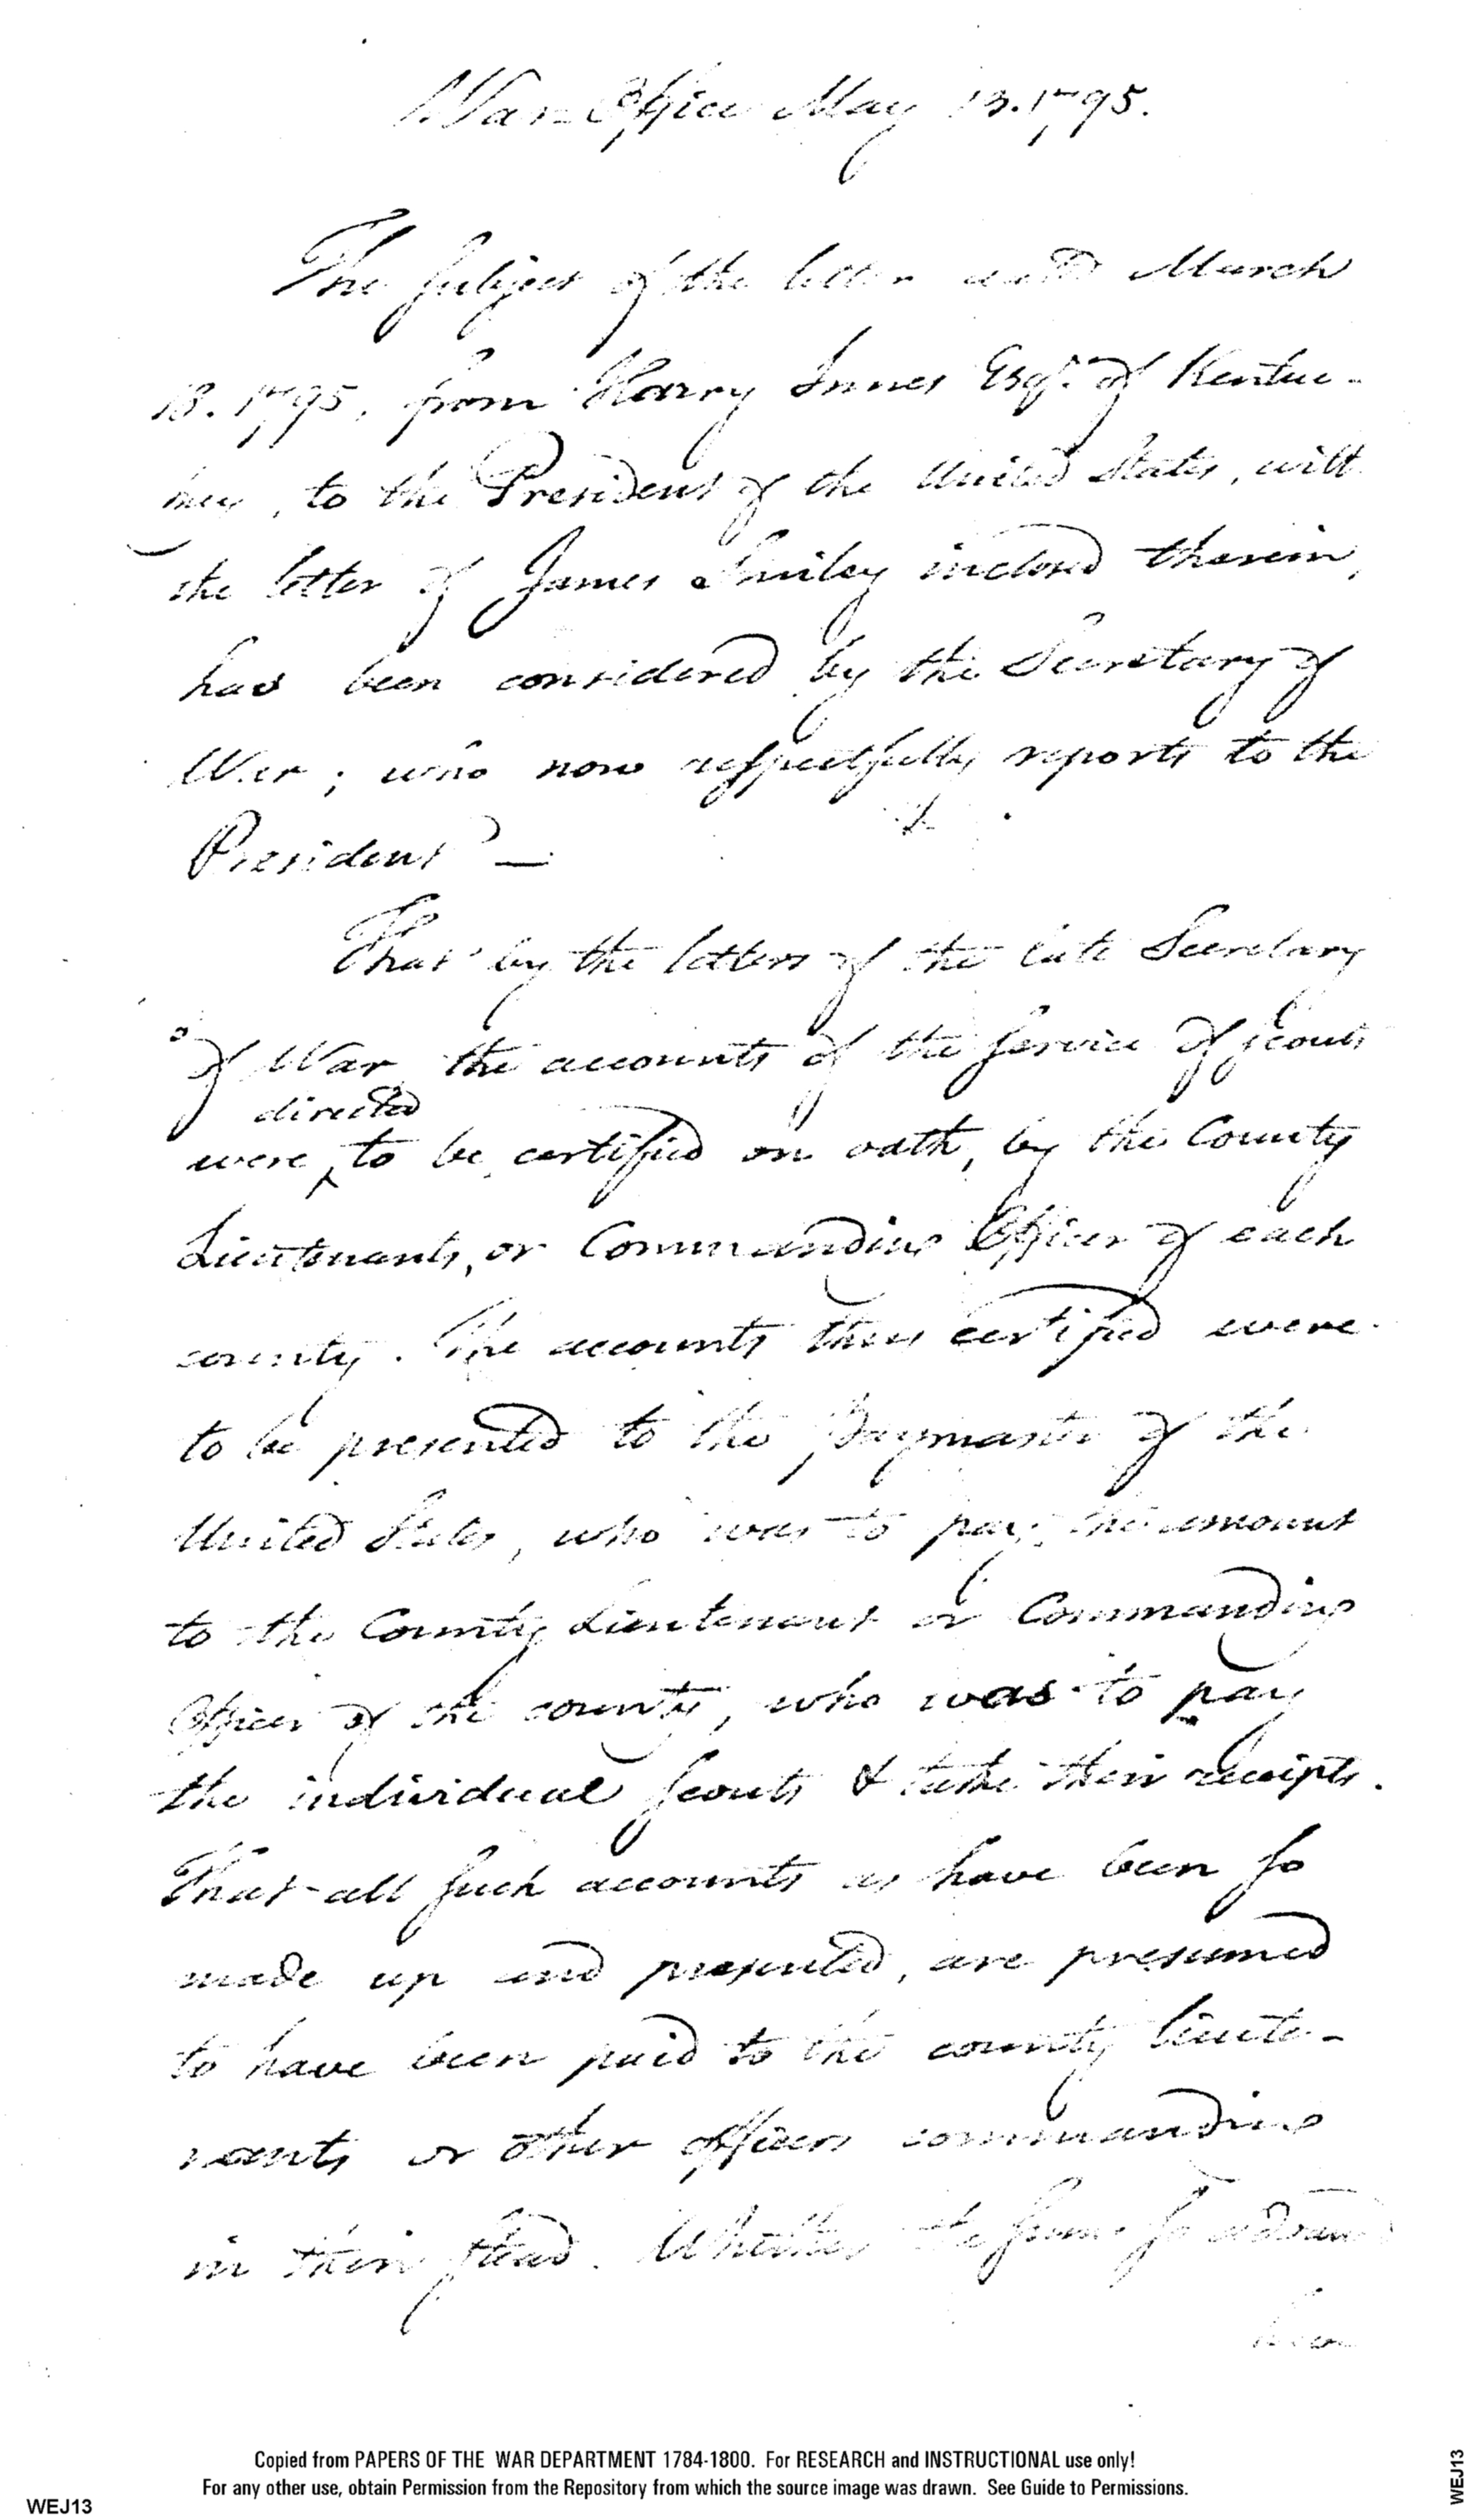 War Office May 13. 1795.
The subject of the letter dated March
13. 1795, from Harry Innes Esqr. of Kentuc-
key, to the President of the United States, with
the letter of James Smiley inclosed therein,
has been considered by the Secretary of
War; who now respectfully reports to the
President —
That by the letters of the late Secretary
of War the accounts of the service of scouts
directed
were ^ to be certified on oath, by the County
Lieutenants, or Commanding Officer of each
county. The accounts thus certified were
to be presented to the Paymaster of the
United States, who was to pay the amount
to the County Lieutenant or Commanding
Officer of the county, who was to pay
the individual scouts & take their receipts.
That all such accounts as have been so
made up and presented, are presumed
to have been paid to the county lieute-
nants or other officers commanding
in their stead. Whether the sums so
been
Copied from PAPERS OF THE WAR DEPARTMENT 1784-1800. For RESEARCH and INSTRUCTIONAL use only!
For any other use, obtain Permission from the Repository from which the source image was drawn. See Guide to Permissions.
WEJ13
WEJ13